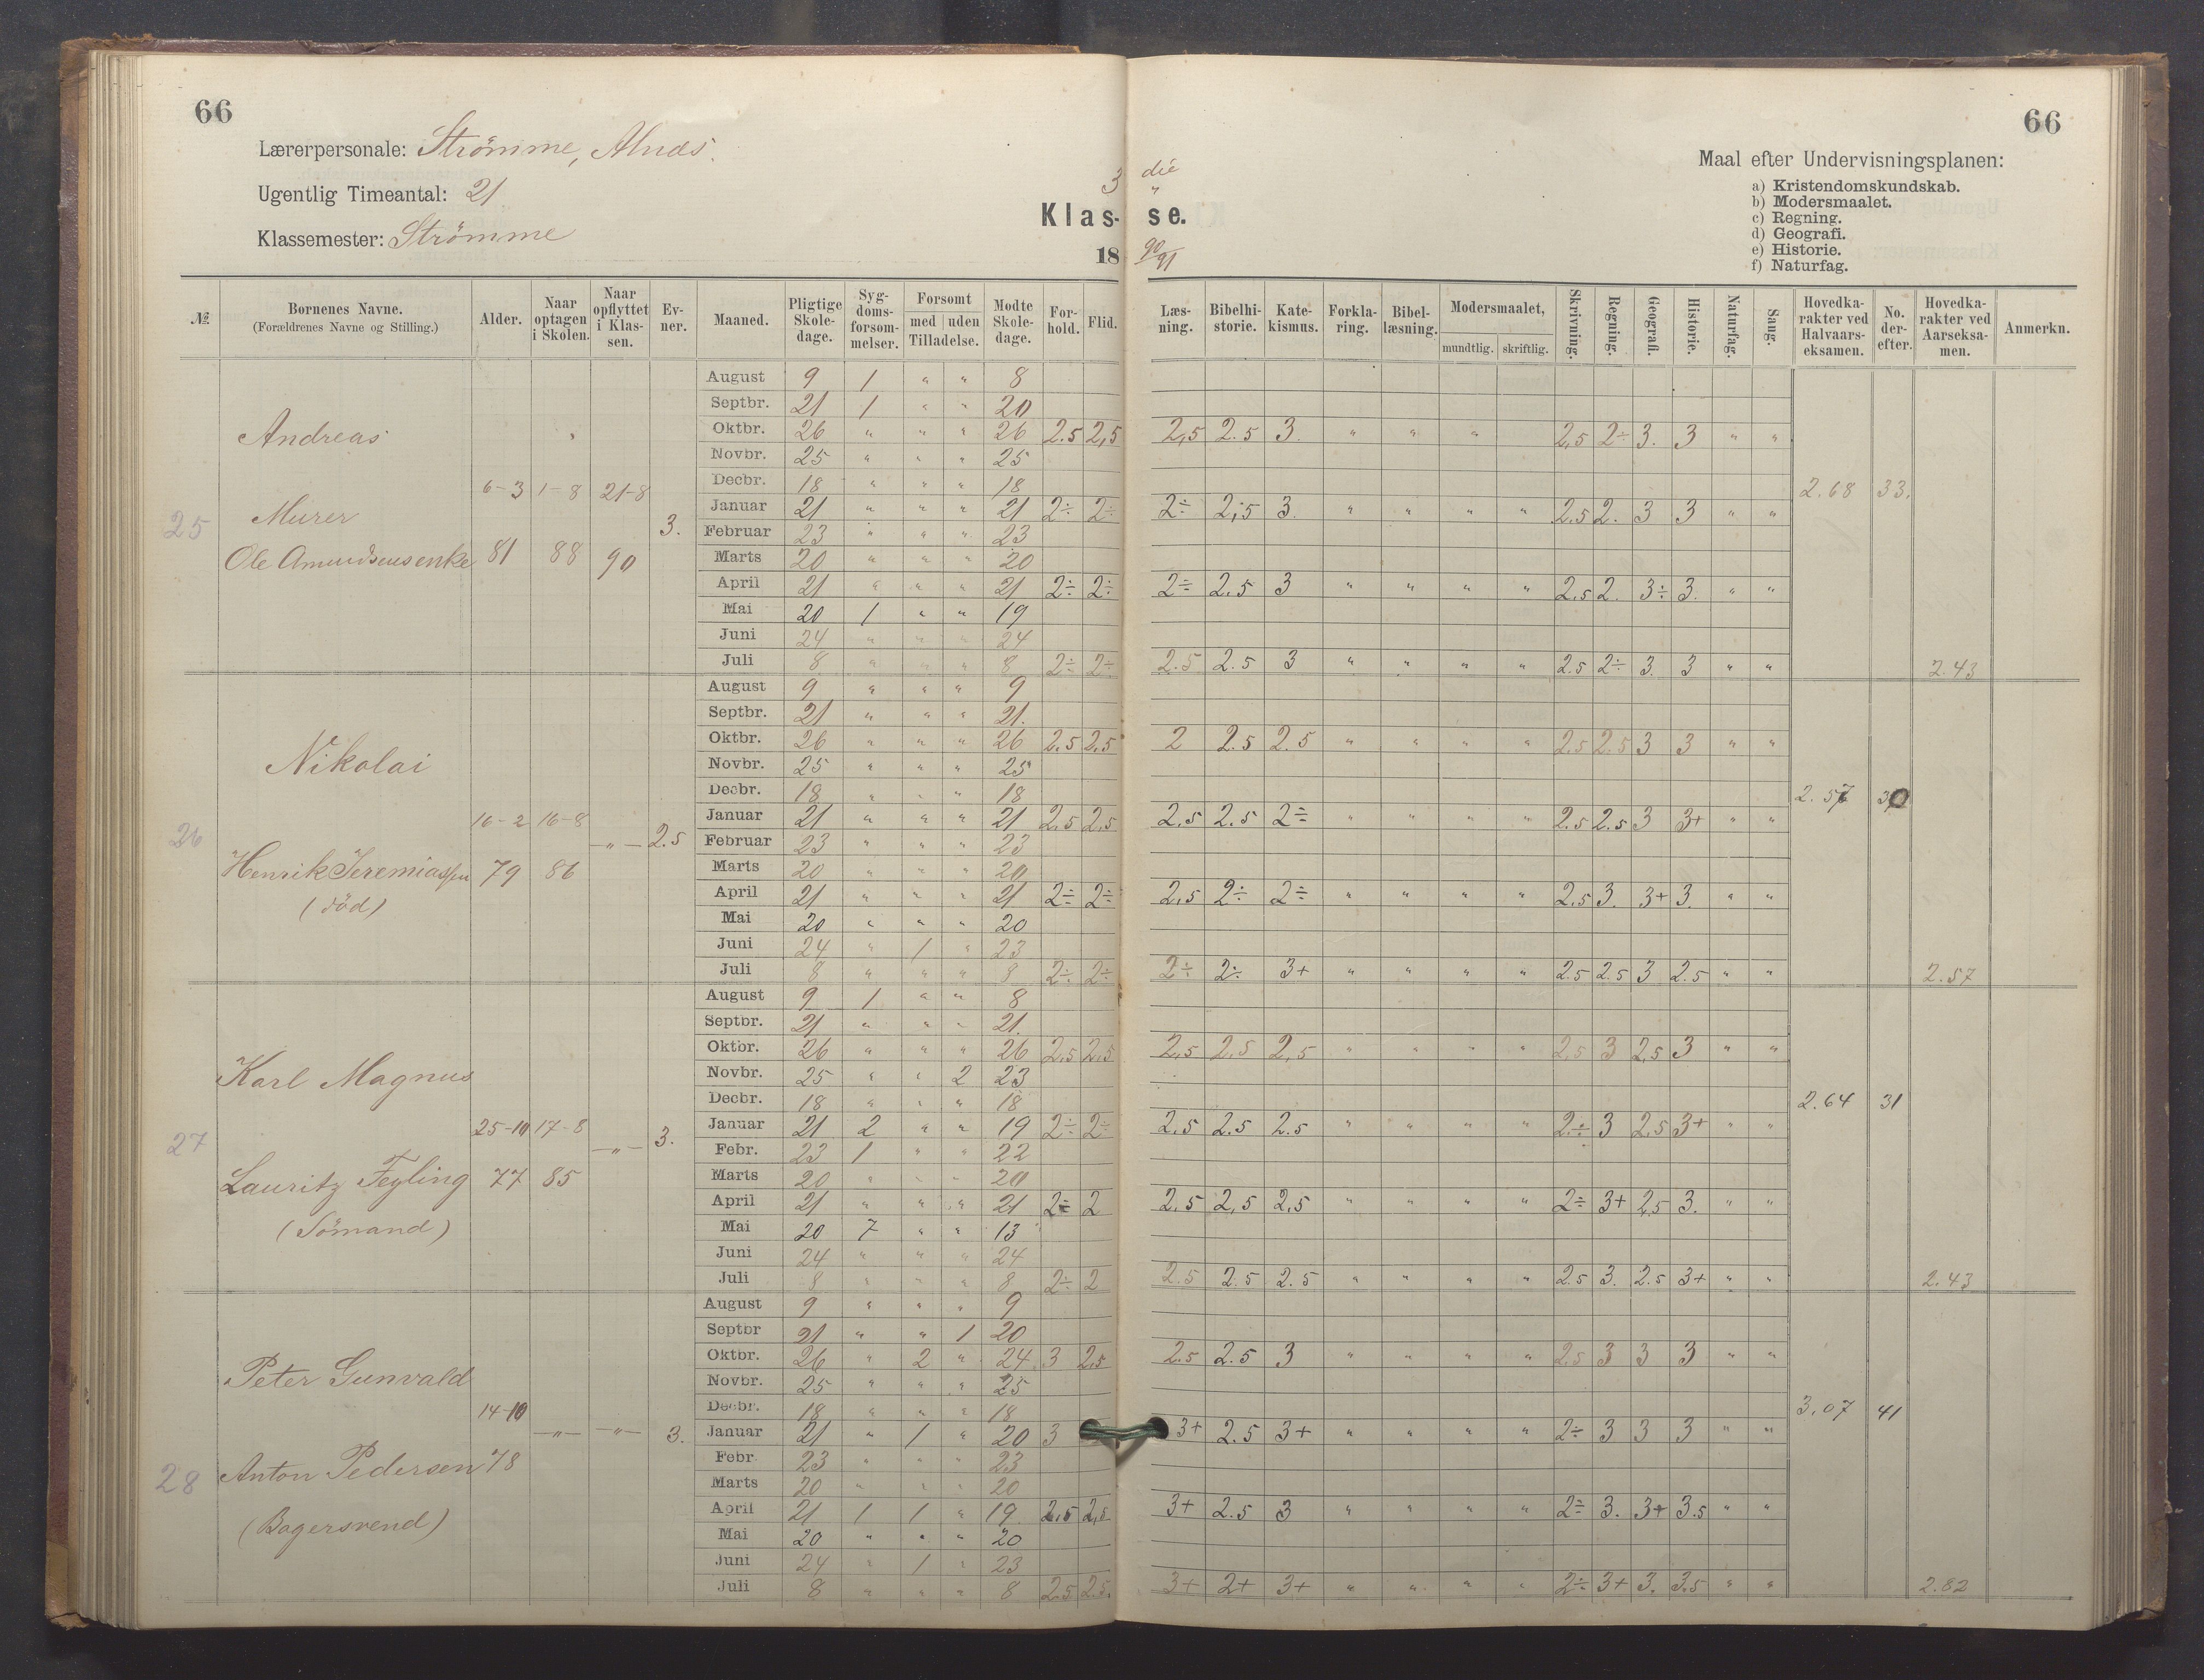 66
66
Lærerpersonale: Strömme, Alnæs.
Ugentlig Timeantal: 21
Klassemester: Strömme
3 die
Klas- se.
18 90/91
Maal efter Undervisningsplanen:
a) Kristendomskundskab.
b) Modersmaalet.
c) Regning.
d) Geografi.
e) Historie.
f) Naturfag.
№ Børnenes Navne. (Forældrenes Navne og Stilling.) Alder. Naar optagen i Skolen. Naar opflyttet i Klassen. Evner. Maaned. Pligtige Skoledage. Sygdomsforsømmelser. Forsømt med uden Tilladelse. Mødte Skoledage. Forhold. Flid. Læsning. Bibelhistorie. Katekismus. Forklaring. Bibellæsning. Modersmaalet, mundtlig. skriftlig. Skrivning. Regning. Geografi. Historie. Naturfag. Sang. Hovedkarakter ved Halvaarseksamen. No. derefter. Hovedkarakter ved Aarseksamen. Anmerkn.
25 Andreas
Murer
Ole Amundsens enke
6-3 81 1-8 88 21-8 90 3.
August 9 1 " " 8
Septbr. 21 1 " " 20
Oktbr. 26 " " " 26 2.5 2,5 2,5 2.5 3. " " " 2,5 2÷ 3. 3 " "
Novbr. 25 " " " 25
Decbr. 18 " " " 18 2.68 33.
Januar 21 " " " 21 2÷ 2÷ 2÷ 2,5 3. " " " " 2.5 2. 3 3 " "
Februar 23 " " " 23
Marts 20 " " " 20
April 21 " " " 21 2÷ 2÷ 2÷ 2.5 3 " " " " 2.5 2. 3÷ 3. " "
Mai 20 1 " " 19
Juni 24 " " " 24
Juli 8 " " " 8 2÷ 2÷ 2.5 2.5 3 " " " " 2.5 2÷ 3. 3 " " 2.43
26 Nikolai
Henrik Jeremiassen
(död)
16-2 79 16-8 86 -"- 2.5
August 9 " " " 9
Septbr. 21 " " " 21.
Oktbr. 26 " " " 26 2.5 2.5 2 2.5 2.5 " " " " 2.5 2.5 3 3 " "
Novbr. 25 " " " 25
Decbr. 18 " " " 18 2.57 30
Januar 21 " " " 21 2.5 2.5 2.5 2.5 2÷ " " " " 2.5 2.5 3 3+ " "
Februar 23 " " " 23
Marts 20 " " " 20
April 21 " " " 21 2÷ 2÷ 2,5 2÷ 2÷ " " " " 2.5 3. 3+ 3. " "
Mai 20 " " " 20
Juni 24 " 1 " 23
Juli 8 " " " 8 2÷ 2÷ 2÷ 2÷ 3+ " " " " 2.5 2.5 3 2.5 " " 2.57
27 Karl Magnus
Lauritz Feyling
(Sömand)
25-10 77 17-8 85 -"- 3.
August 9 1 " " 8
Septbr. 21 " " " 21.
Oktbr. 26 " " " 26 2.5 2.5 2,5 2,5 2,5 " " " " 2,5 3 2,5 3 " "
Novbr. 25 " " 2 23
Decbr. 18 " " " 18 2.64 31
Januar 21 2 " " 19 2÷ 2÷ 2.5 2.5 2.5 " " " " 2÷ 3 2,5 3+ " "
Febr. 23 1 " " 22
Marts 20 " " " 20
April 21 " " " 21 2÷ 2 2.5 2,5 2,5 " " " " 2÷ 3+ 2,5 3. " "
Mai 20 7 " " 13
Juni 24 " " " 24
Juli 8 " " " 8 2÷ 2 2.5 2.5 2.5 " " " " 2.5 3. 2.5 3+ " " 2.43
28 Peter Gunvald
Anton Pedersen
(Bagersvend)
14-10 78 -"- -"- 3.
August 9 " " " 9
Septbr 21 " " 1 20
Oktbr. 26 " 2 " 24 3 2,5 2.5 2.5 3 " " " " 2.5 3 3 3 " "
Novbr. 25 " " " 25
Decbr. 18 " " " 18 3.07 41
Januar 21 " 1 " 20 3 3+ 2.5 3+ " " " " 2÷ 3 3 3 " "
Febr 23 " " " 23
Marts 20 " " " 20
April 21 1 1 " 19 2.5 2.5 3+ 2.5 3 " " " " 2÷ 3. 3+ 3.5 " "
Mai 20 " " " 20
Juni 24 " 1 " 23
Juli 8 " " " 8 2.5 2.5. 3+ 2+ 3+ " " " " 2÷ 3+ 3. 3.5 " " 2.82